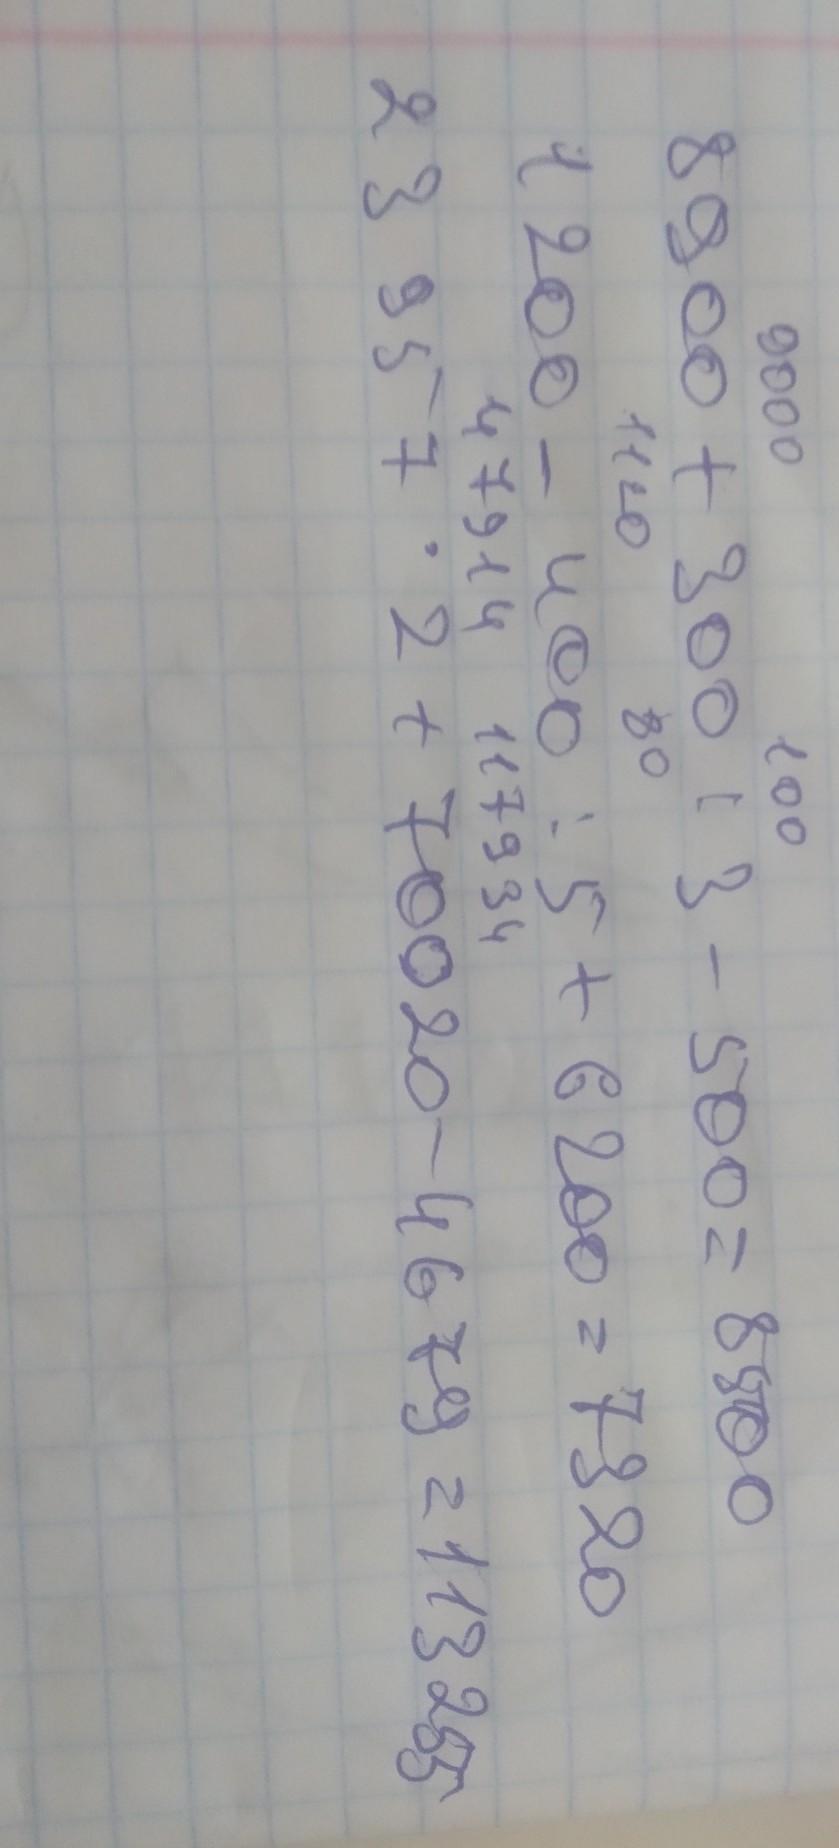 9000 100
8900 + 300 : 3 - 500 = 8500
1120 80
1200 - 400 : 5 + 6200 = 7320
47914 117934
23957 · 2 + 70020 - 4679 = 113255